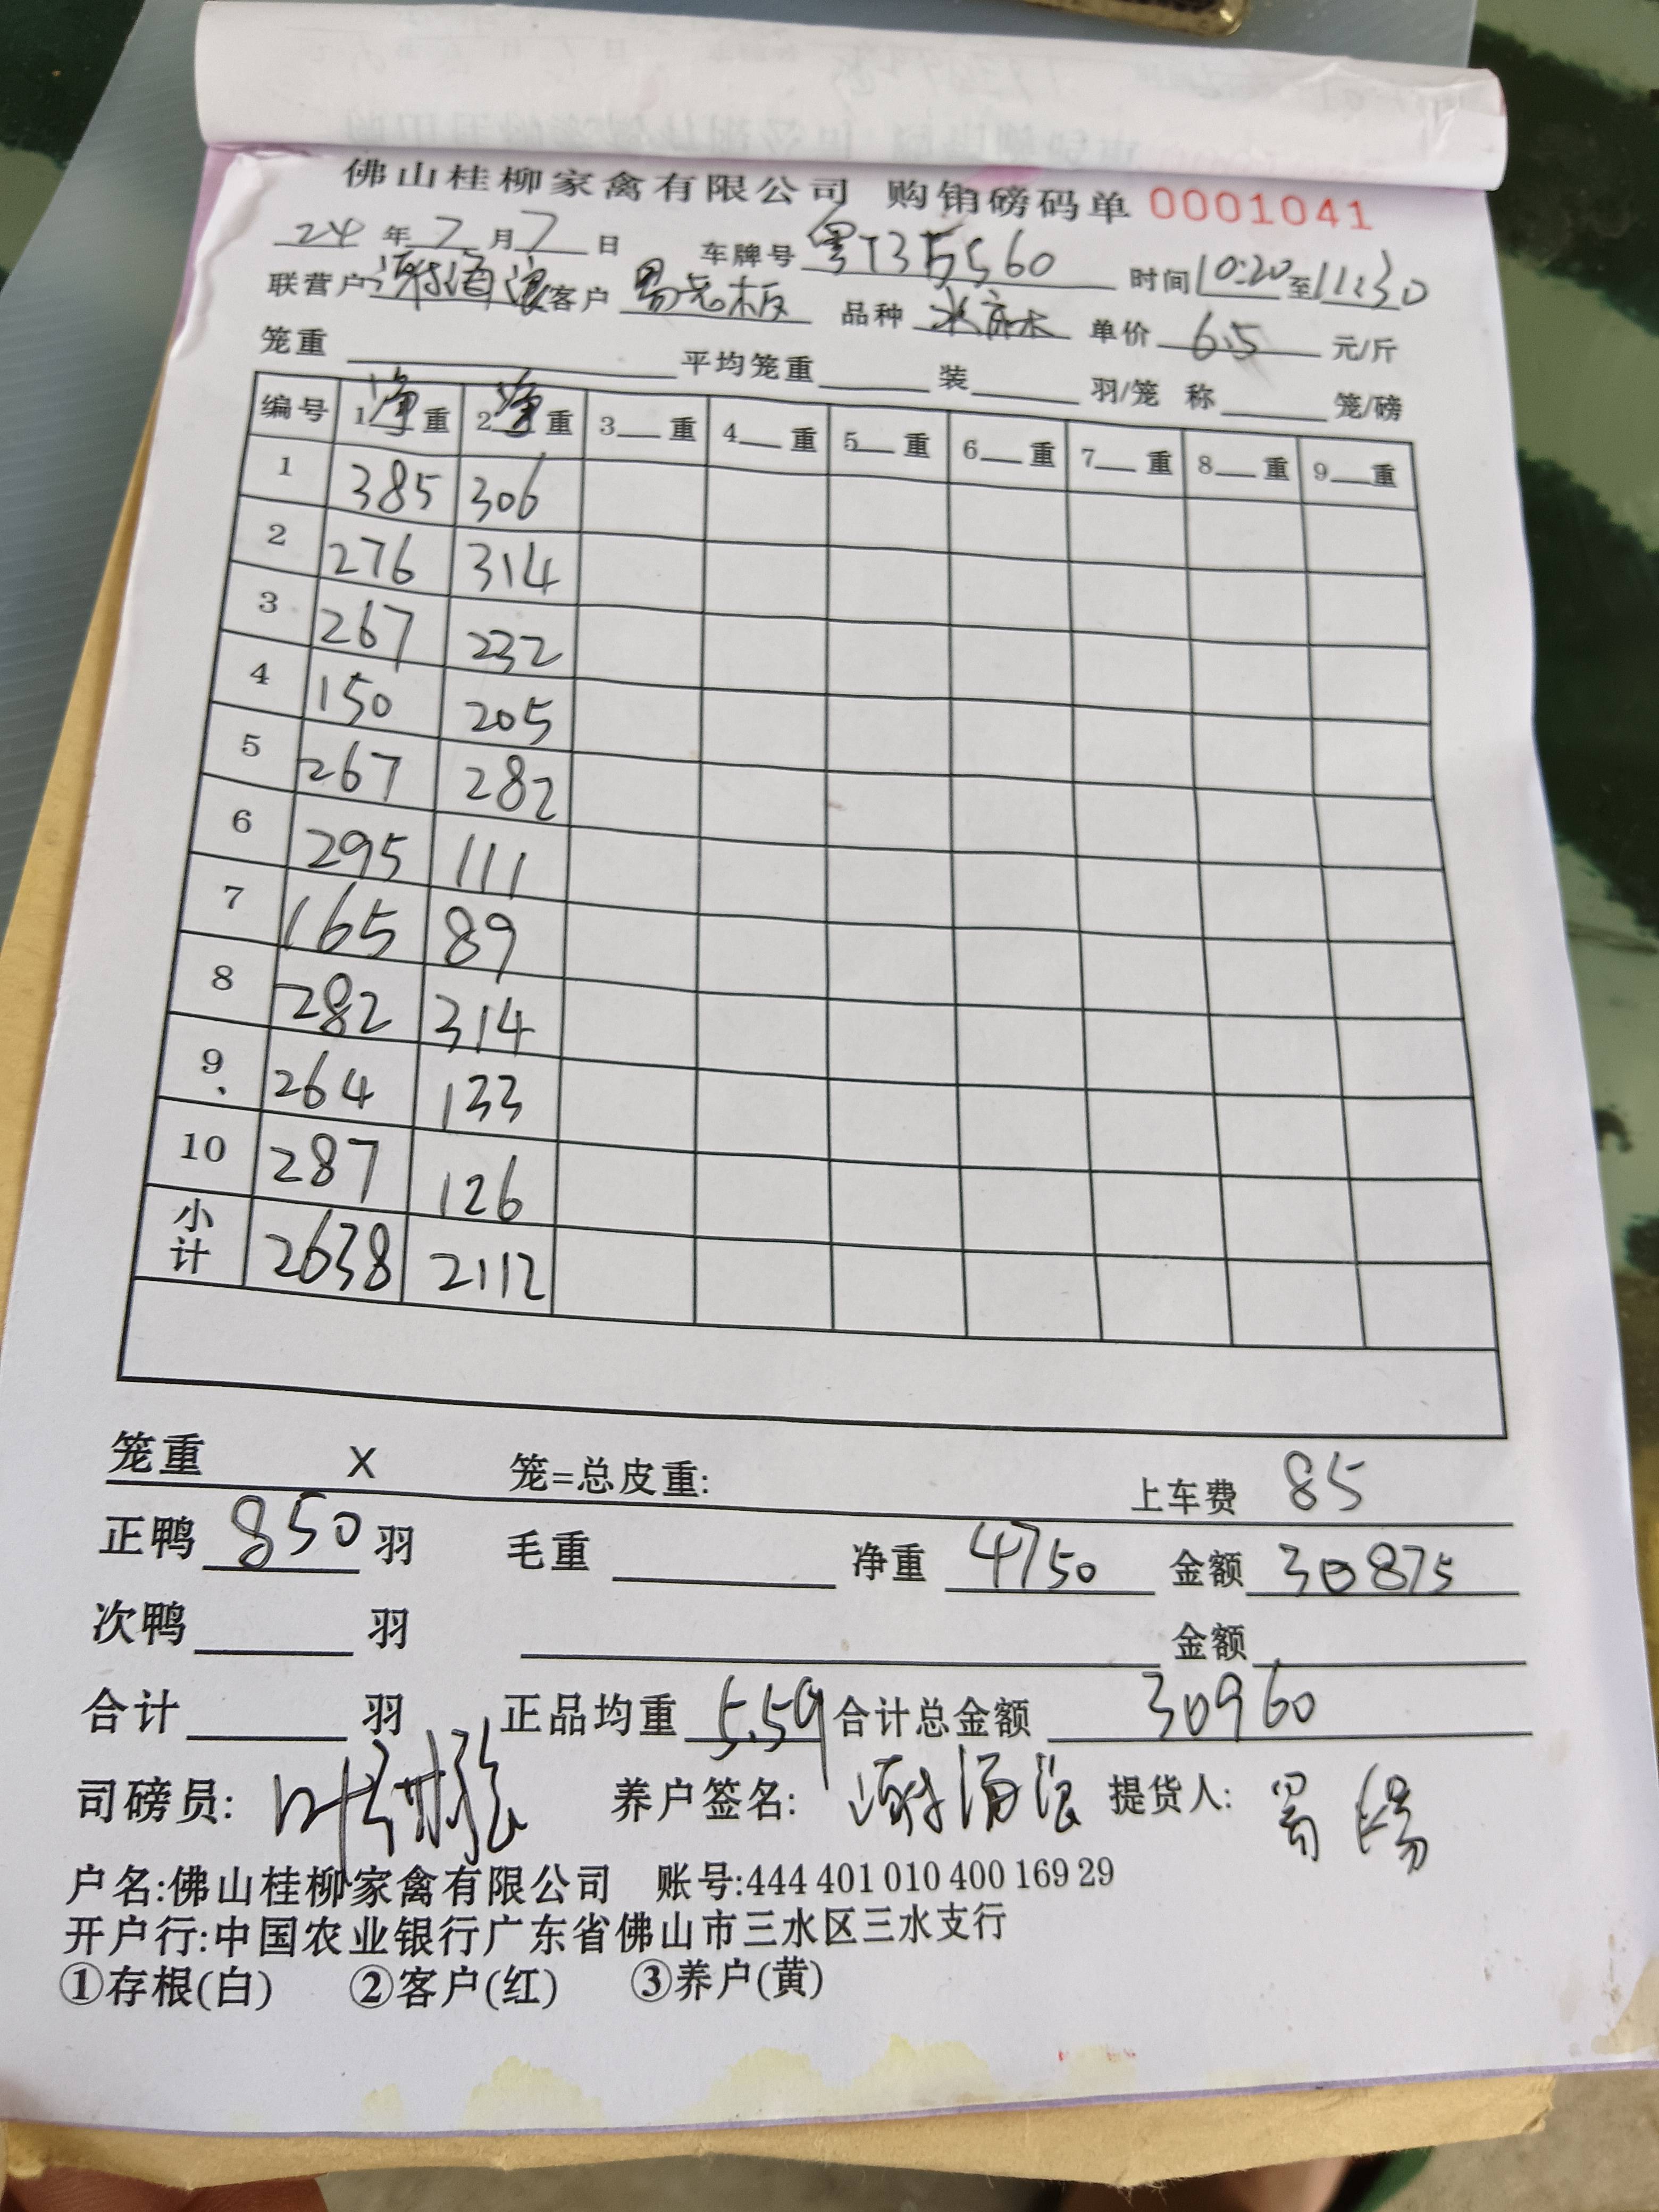 佛山桂柳家禽有限公司 购销磅码单 0001041
24 年 7 月 7 日 车牌号 粤T35560 时间 10:20 至 11:30
联营户 谢 客户 易老板 品种 水麻 单价 6.5 元/斤
笼重 平均笼重 装 羽/笼 称 笼/磅
编号 1净重 2净重 3重 4重 5重 6重 7重 8重 9重
1 385 306
2 276 314
3 267 232
4 150 205
5 267 282
6 295 111
7 165 89
8 282 314
9 264 133
10 287 126
小计 2638 2112
笼重 X 笼=总皮重: 上车费 85
正鸭 850 羽 毛重 净重 4750 金额 30875
次鸭 羽 金额
合计 羽 正品均重 5.59 合计总金额 30960
司磅员: 养户签名: 谢 提货人: 易
户名:佛山桂柳家禽有限公司 账号:444 401 010 400 169 29
开户行:中国农业银行广东省佛山市三水区三水支行
①存根(白) ②客户(红) ③养户(黄)